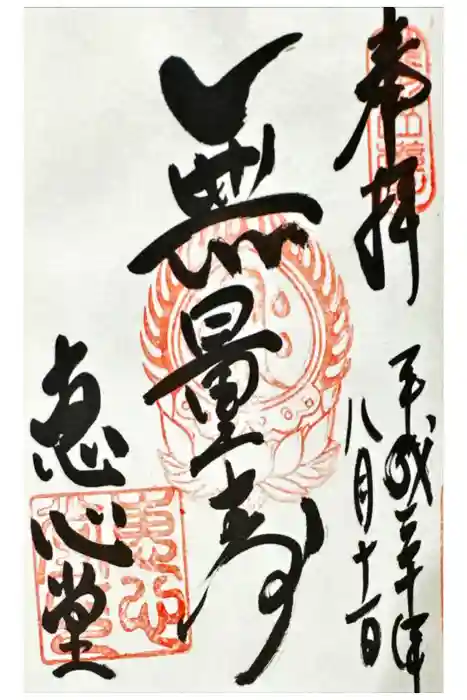 奉拝
平成三十年
八月十一日
無量寿
恵心堂